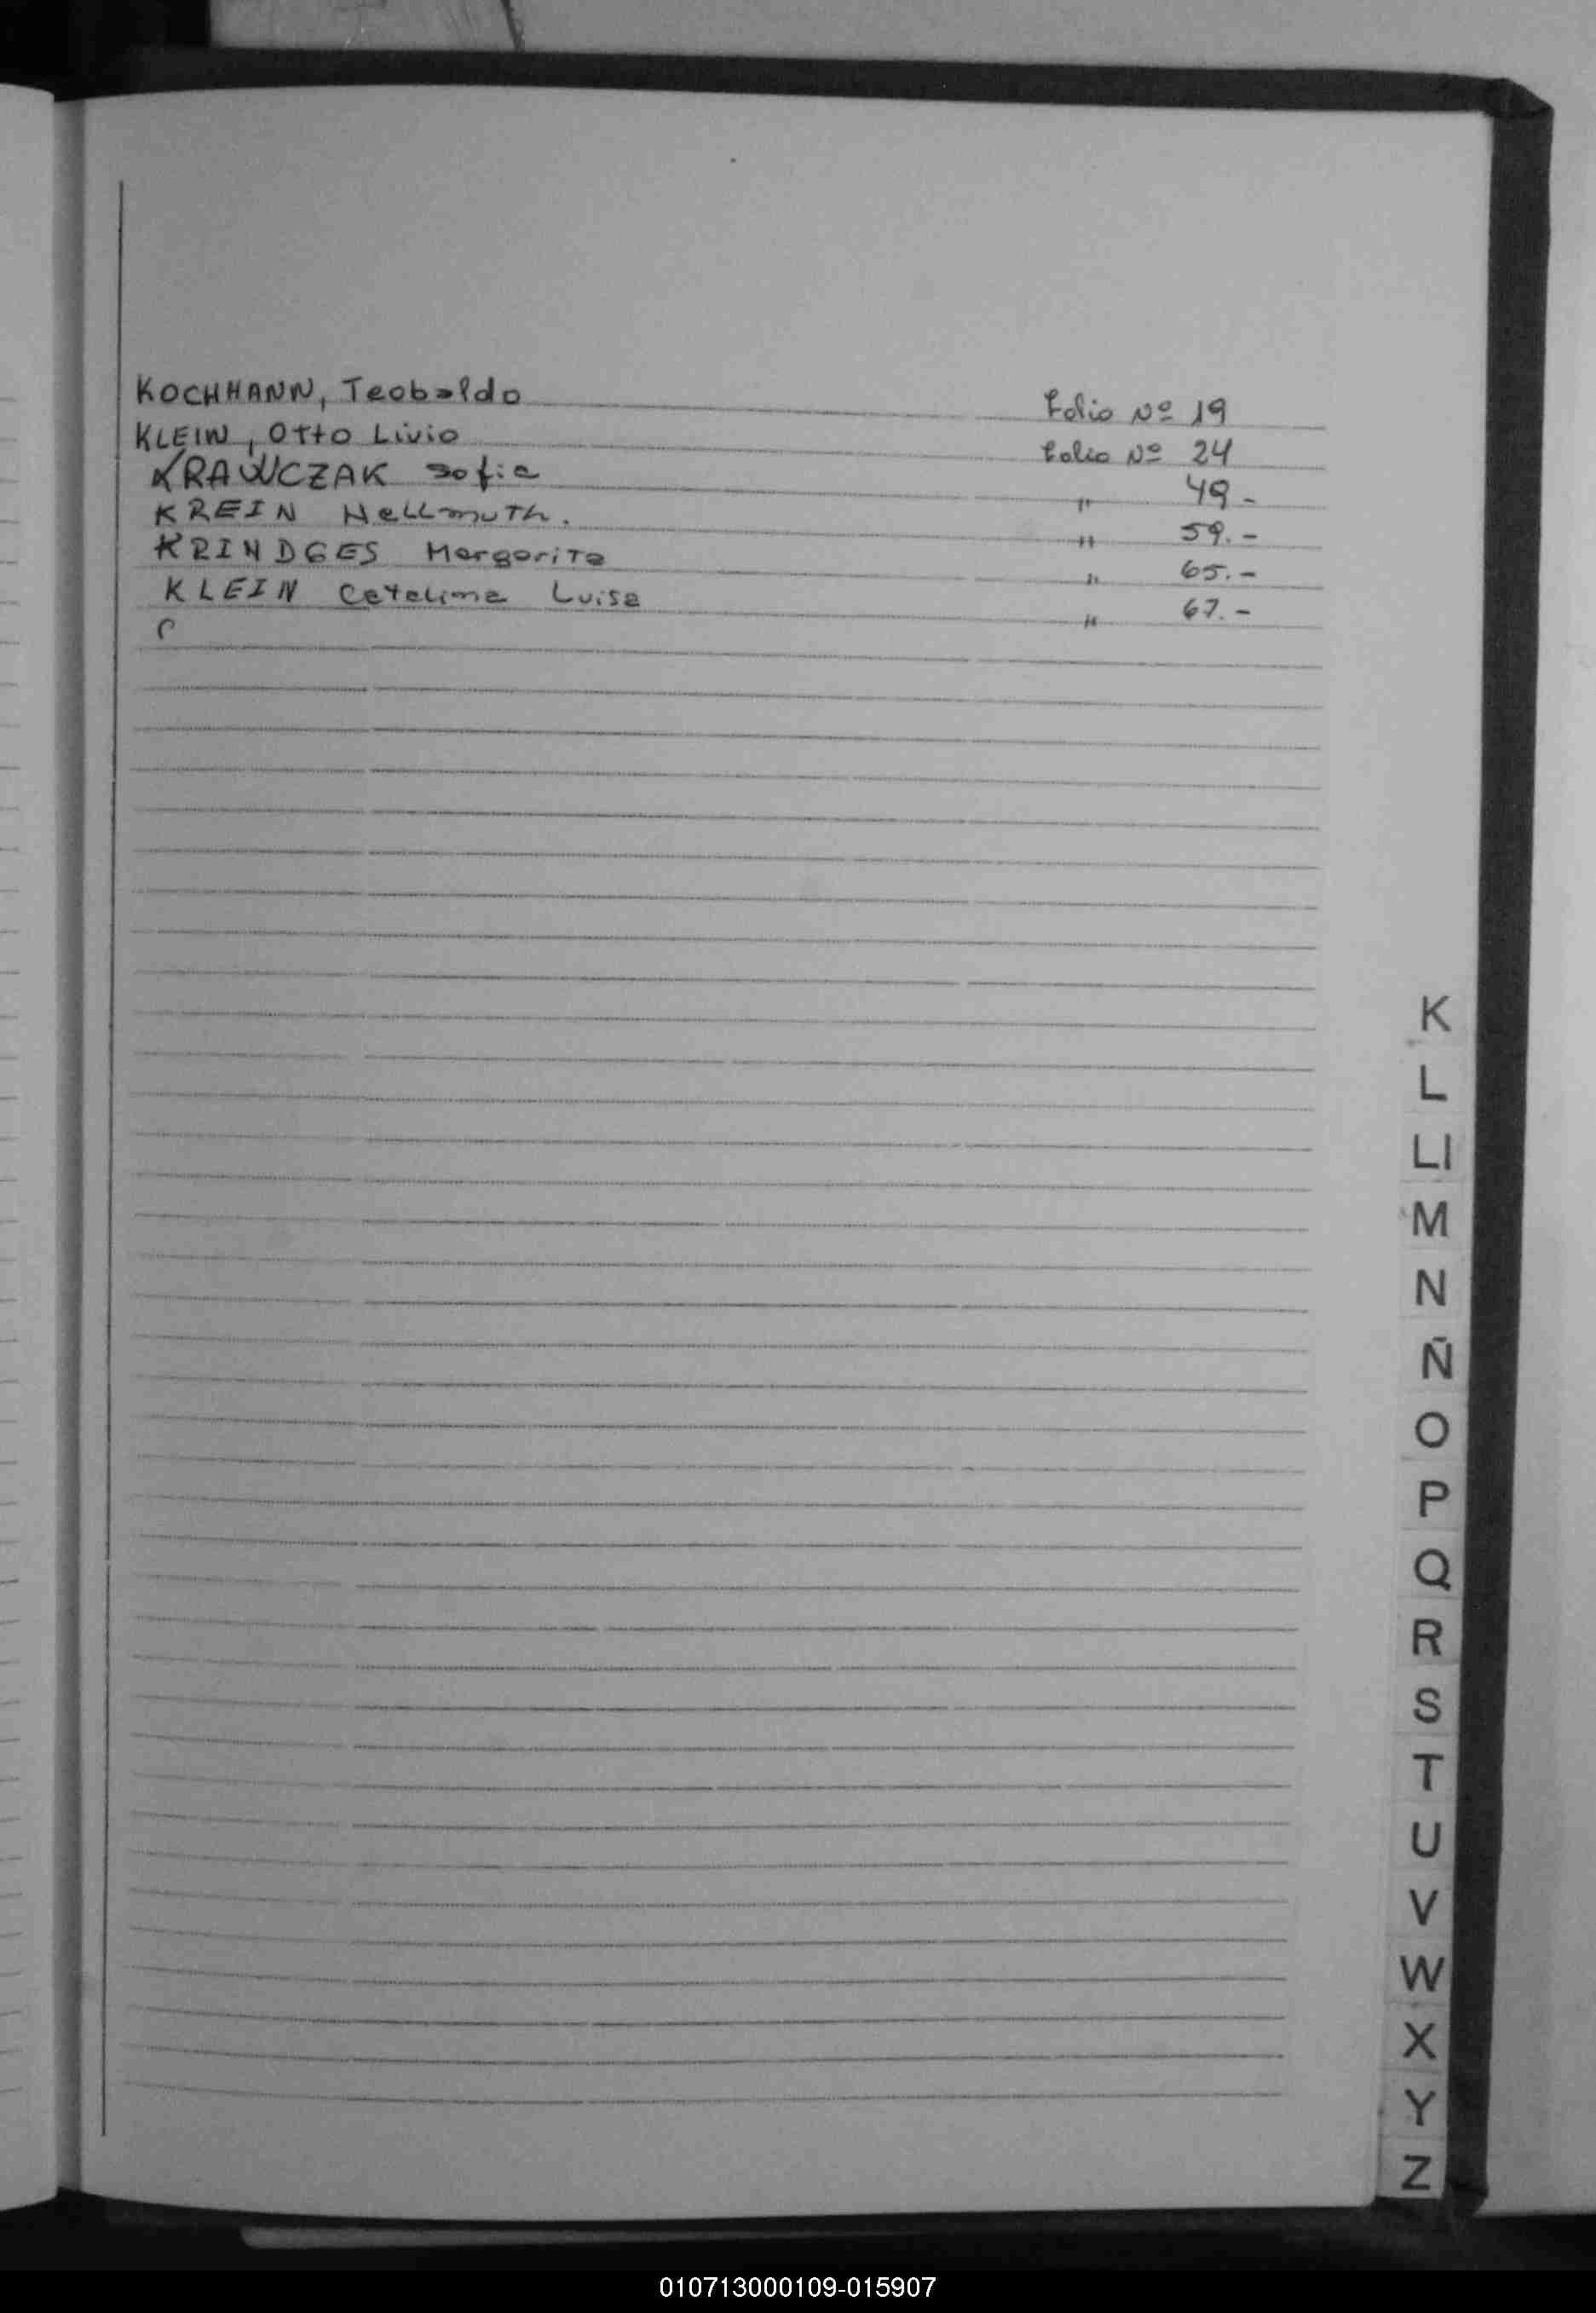 KOCHHANN, Teobaldo Folio Nº 19
KLEIN, Otto Livio Folio Nº 24
KRAWCZAK Sofia " 49.-
KREIN Hellmuth. " 59.-
KRINDGES Margarita " 65.-
KLEIN Catalina Luisa " 67.-
K
L
Ll
M
N
Ñ
O
P
Q
R
S
T
U
V
W
X
Y
Z
010713000109-015907